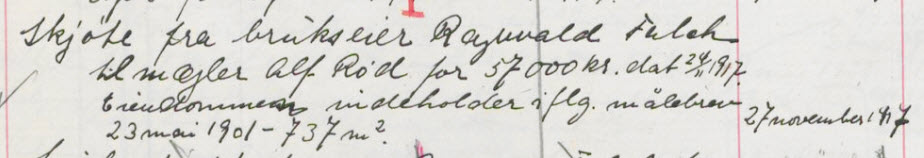 Skjöte fra brukseier Ragnvald Falch
til mægler Alf Röd for 57000 kr. dat 24/11 1917.
Eiendommen indeholder iflg. målebrev
23 mai 1901 - 737 m². 27 november 1917